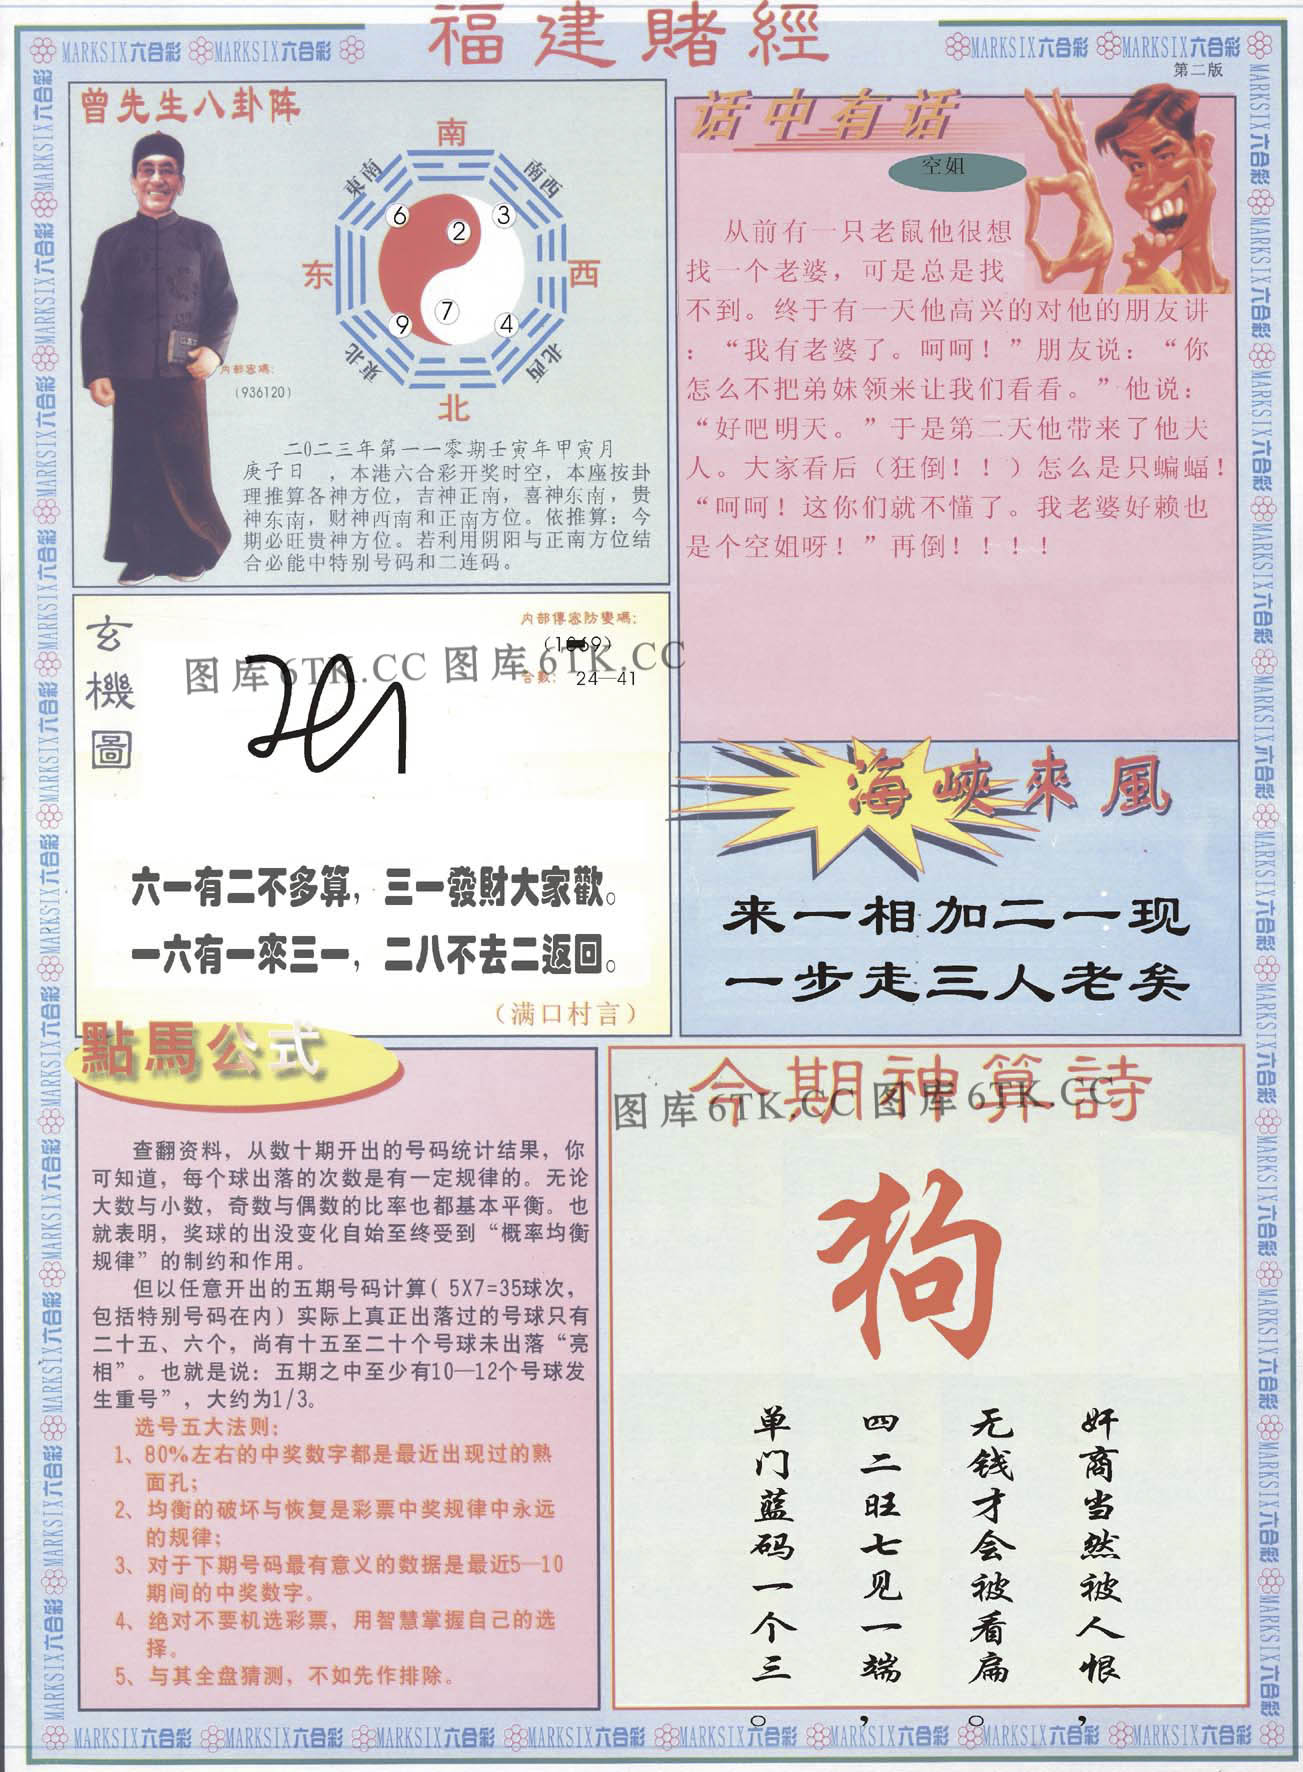 福建賭經
MARKSIX六合彩 MARKSIX六合彩
MARKSIX六合彩 MARKSIX六合彩
第二版
曾先生八卦阵
南
東南
南西
6
2
3
东
西
9
7
4
東北
北西
北
内部密碼:
(936120)
二0二三年第一一零期壬寅年甲寅月
庚子日 ，本港六合彩开奖时空，本座按卦
理推算各神方位，吉神正南，喜神东南，贵
神东南，财神西南和正南方位。依推算：今
期必旺贵神方位。若利用阴阳与正南方位结
合必能中特别号码和二连码。
话中有话
空姐
从前有一只老鼠他很想
找一个老婆，可是总是找
不到。终于有一天他高兴的对他的朋友讲
：“我有老婆了。呵呵！”朋友说：“你
怎么不把弟妹领来让我们看看。”他说：
“好吧明天。”于是第二天他带来了他夫
人。大家看后（狂倒！！）怎么是只蝙蝠！
“呵呵！这你们就不懂了。我老婆好赖也
是个空姐呀！”再倒！！！！
玄機圖
内部傳密防變碼:
合數: 24—41
图库6TK.CC 图库6TK.CC
六一有二不多算，三一發財大家歡。
一六有一來三一，二八不去二返回。
（满口村言）
海峽來風
来一相加二一现
一步走三人老矣
點馬公式
查翻资料，从数十期开出的号码统计结果，你
可知道，每个球出落的次数是有一定规律的。无论
大数与小数，奇数与偶数的比率也都基本平衡。也
就表明，奖球的出没变化自始至终受到“概率均衡
规律”的制约和作用。
但以任意开出的五期号码计算( 5X7=35球次，
包括特别号码在内) 实际上真正出落过的号球只有
二十五、六个，尚有十五至二十个号球未出落“亮
相”。也就是说：五期之中至少有10—12个号球发
生重号”，大约为1/3。
选号五大法则：
1、80%左右的中奖数字都是最近出现过的熟
面孔；
2、均衡的破坏与恢复是彩票中奖规律中永远
的规律；
3、对于下期号码最有意义的数据是最近5—10
期间的中奖数字。
4、绝对不要机选彩票，用智慧掌握自己的选
择。
5、与其全盘猜测，不如先作排除。
今期神算詩
图库6TK.CC 图库6TK.CC
狗
奸商当然被人恨，
无钱才会被看扁。
四二旺七见一端，
单门蓝码一个三。
MARKSIX六合彩 MARKSIX六合彩 MARKSIX六合彩 MARKSIX六合彩 MARKSIX六合彩 MARKSIX六合彩 MARKSIX六合彩 MARKSIX六合彩